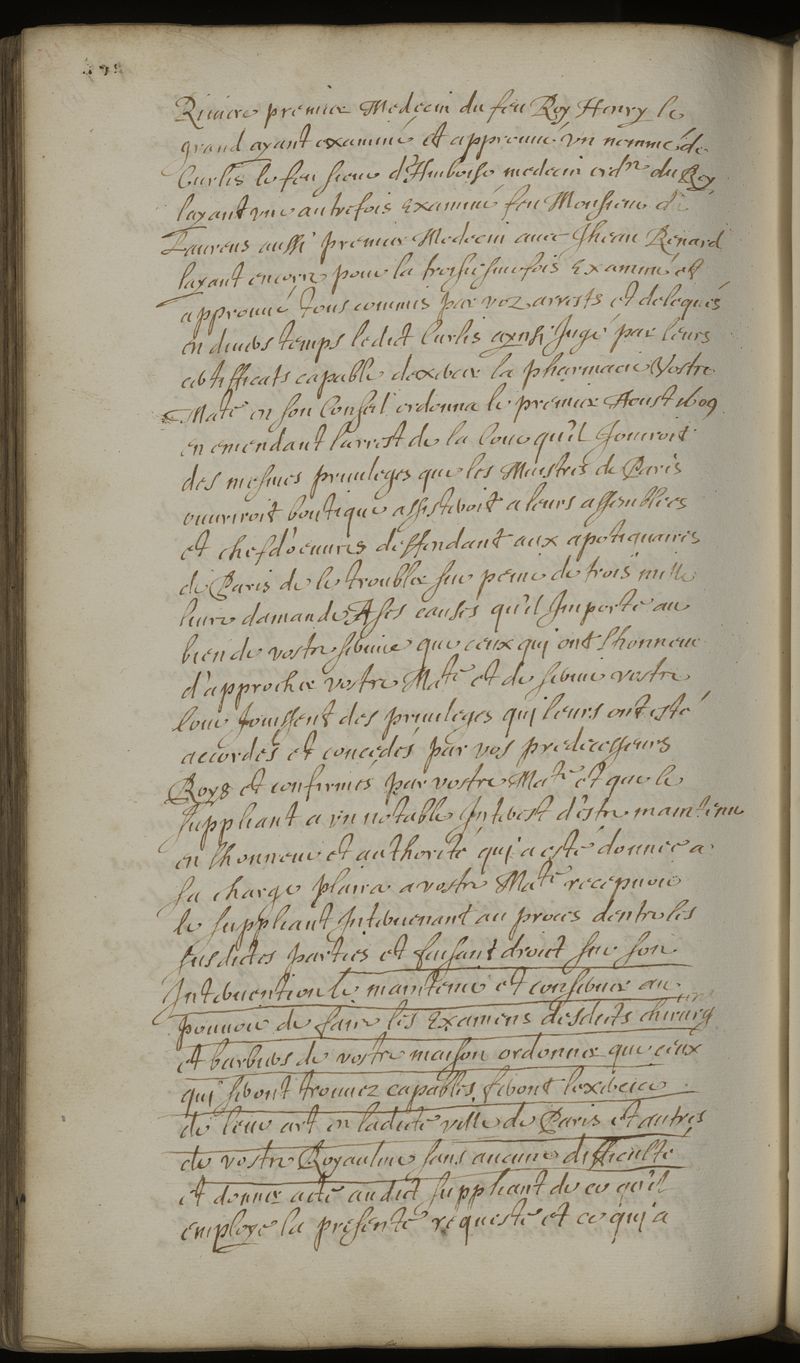 Riviere premier Medecin du feu Roy Henry le
grand ayant examiné et approuué vn nommé de
Curlis le feu sieur d'Amboise medecin ordre du Roy
layant vne autrefois Examiné feu Monsieur du
Laurens aussi premier Medecin auec Jhean Renard
layant encorre pour la troisiesme fois Examiné et
approuué tous commis par voz arrests et delegués
en diuers temps ledict Curlis aynsi Jugé par leurs
certifficats capable dexercer la pharmacie Vostre
Mate en son Conseil ordonna le premier Aoust 1609
en emendant l'arrest de la Cour qu'il Jouiroit
des mesmes priuileges que les Maistres de Paris
ouuriroit boutique assisteroit a leurs assemblées
et chefd'oeuures deffendant aux apotiquaires
de Paris de le troubler sur peine de trois mille
liure damande A ses causes qu'il Importe au
bien de vostre seruice que ceux qui ont l'honneur
d'approcher vostre Mate et de seruir vostre
Cour Jouissent des priuileges qui leurs ont esté
accordés et concedés par vos predecesseurs
Roys et confirmés par vostre Mate et que le
suppliant a vn notable Interest d'estre maintenu
en l'honneur et authorité qui a esté donnee a
sa charge plaira a vostre Mate recepuoir
le suppliant Interuenant au proces dentre les
susdictes parties et faisant droict sur son
Interuention le maintenir et conseruer au
pouuoir de faire les Examens desdicts chirurg
et barbiers de vostre maison ordonner que ceux
qui seront trouuez capables feront lexercice
de leur art en ladicte ville de Paris et autres
de vostre Royaulme sans aucune difficulté
et donner acte audict suppliant de ce qu'il
employe la presente requeste et ce qui a